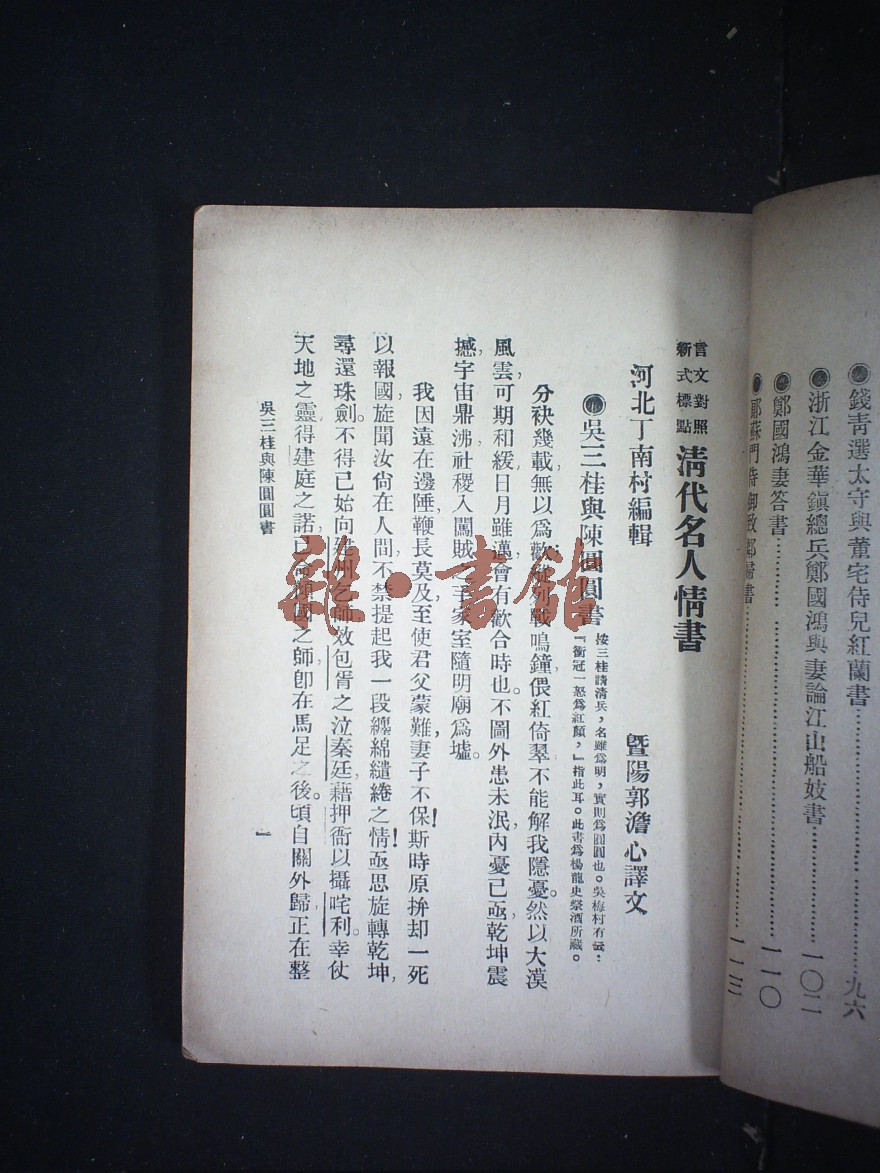 錢靑選太守與董宅侍兒紅蘭書⋯⋯九六
浙江金華鎭總兵鄭國鴻與妻論江山船妓書⋯⋯一〇二
鄭國鴻妻答書⋯⋯一一〇
⋯⋯一一三
言文對照
新式標點
淸代名人情書
河北丁南村編輯
曁陽郭澹心譯文
吳三桂與陳圓圓書
按三桂請淸兵，名雖爲明，實則爲圓圓也。吳梅村有云：
『衝冠一怒爲紅顏，』指此耳。此書爲楊龍史祭酒所藏。
分袂幾載，無以爲歡，縱列戟鳴鐘，偎紅倚翠，不能解我隱憂。然以大漠
風雲，可期和緩，日月雖邁，會有歡合時也。不圖外患未泯，內憂已亟，乾坤震
撼，宇宙鼎沸，社稷入闖賊之手，家室隨明廟爲墟。
我因遠在邊陲，鞭長莫及，至使君父蒙難，妻子不保！斯時原拚却一死
以報國，旋聞汝尙在人間，不禁提起我一段纏綿繾綣之情！亟思旋轉乾坤，
尋還珠劍。不得已始向建州乞師，效包胥之泣秦廷，藉押衙以攝咤利。幸仗
天地之靈，得建庭之諾，已命傾國之師，卽在馬足之後。頃自關外歸，正在整
吳三桂與陳圓圓書
一
雜·書館